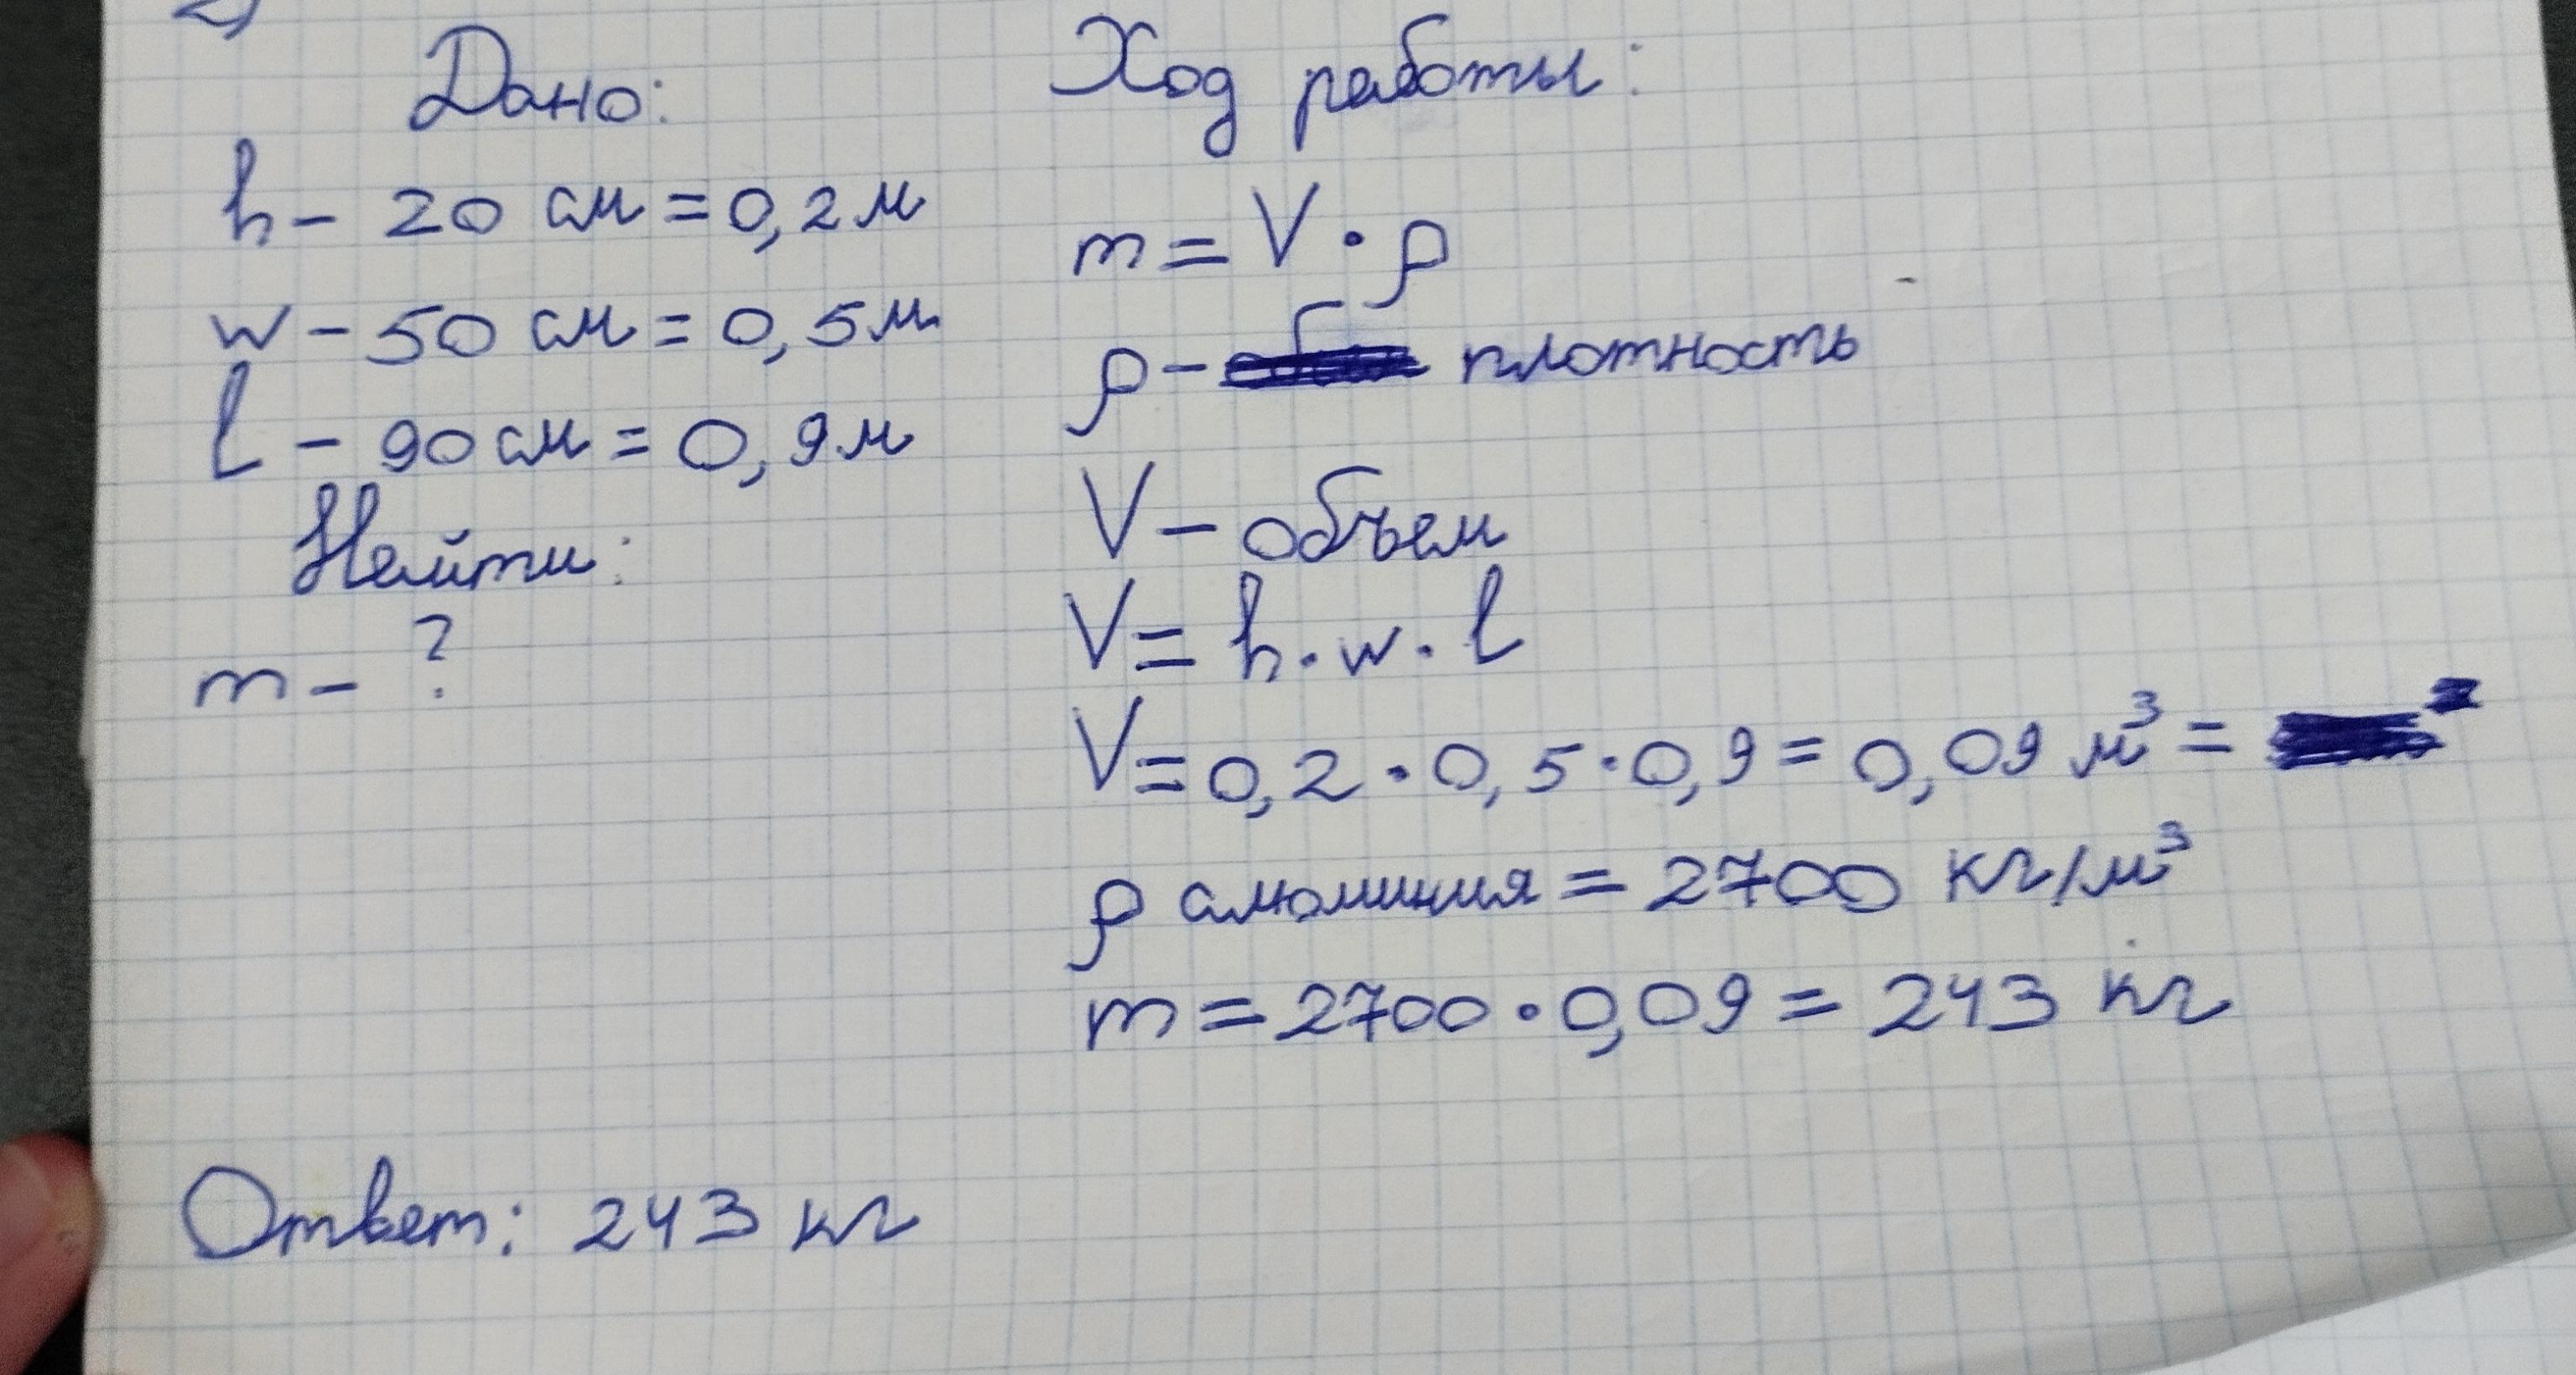 2)
Дано:
h - 20 см = 0,2 м
w - 50 см = 0,5 м
l - 90 см = 0,9 м
Найти:
m - ?
Ход работы:
m = V · ρ
ρ - плотность
V - объем
V = h · w · l
V = 0,2 · 0,5 · 0,9 = 0,09 м³ =
ρ алюминия = 2700 кг/м³
m = 2700 · 0,09 = 243 кг
Ответ: 243 кг